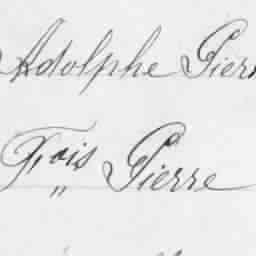 Adolphe Pierr
Fçois Pierre
"